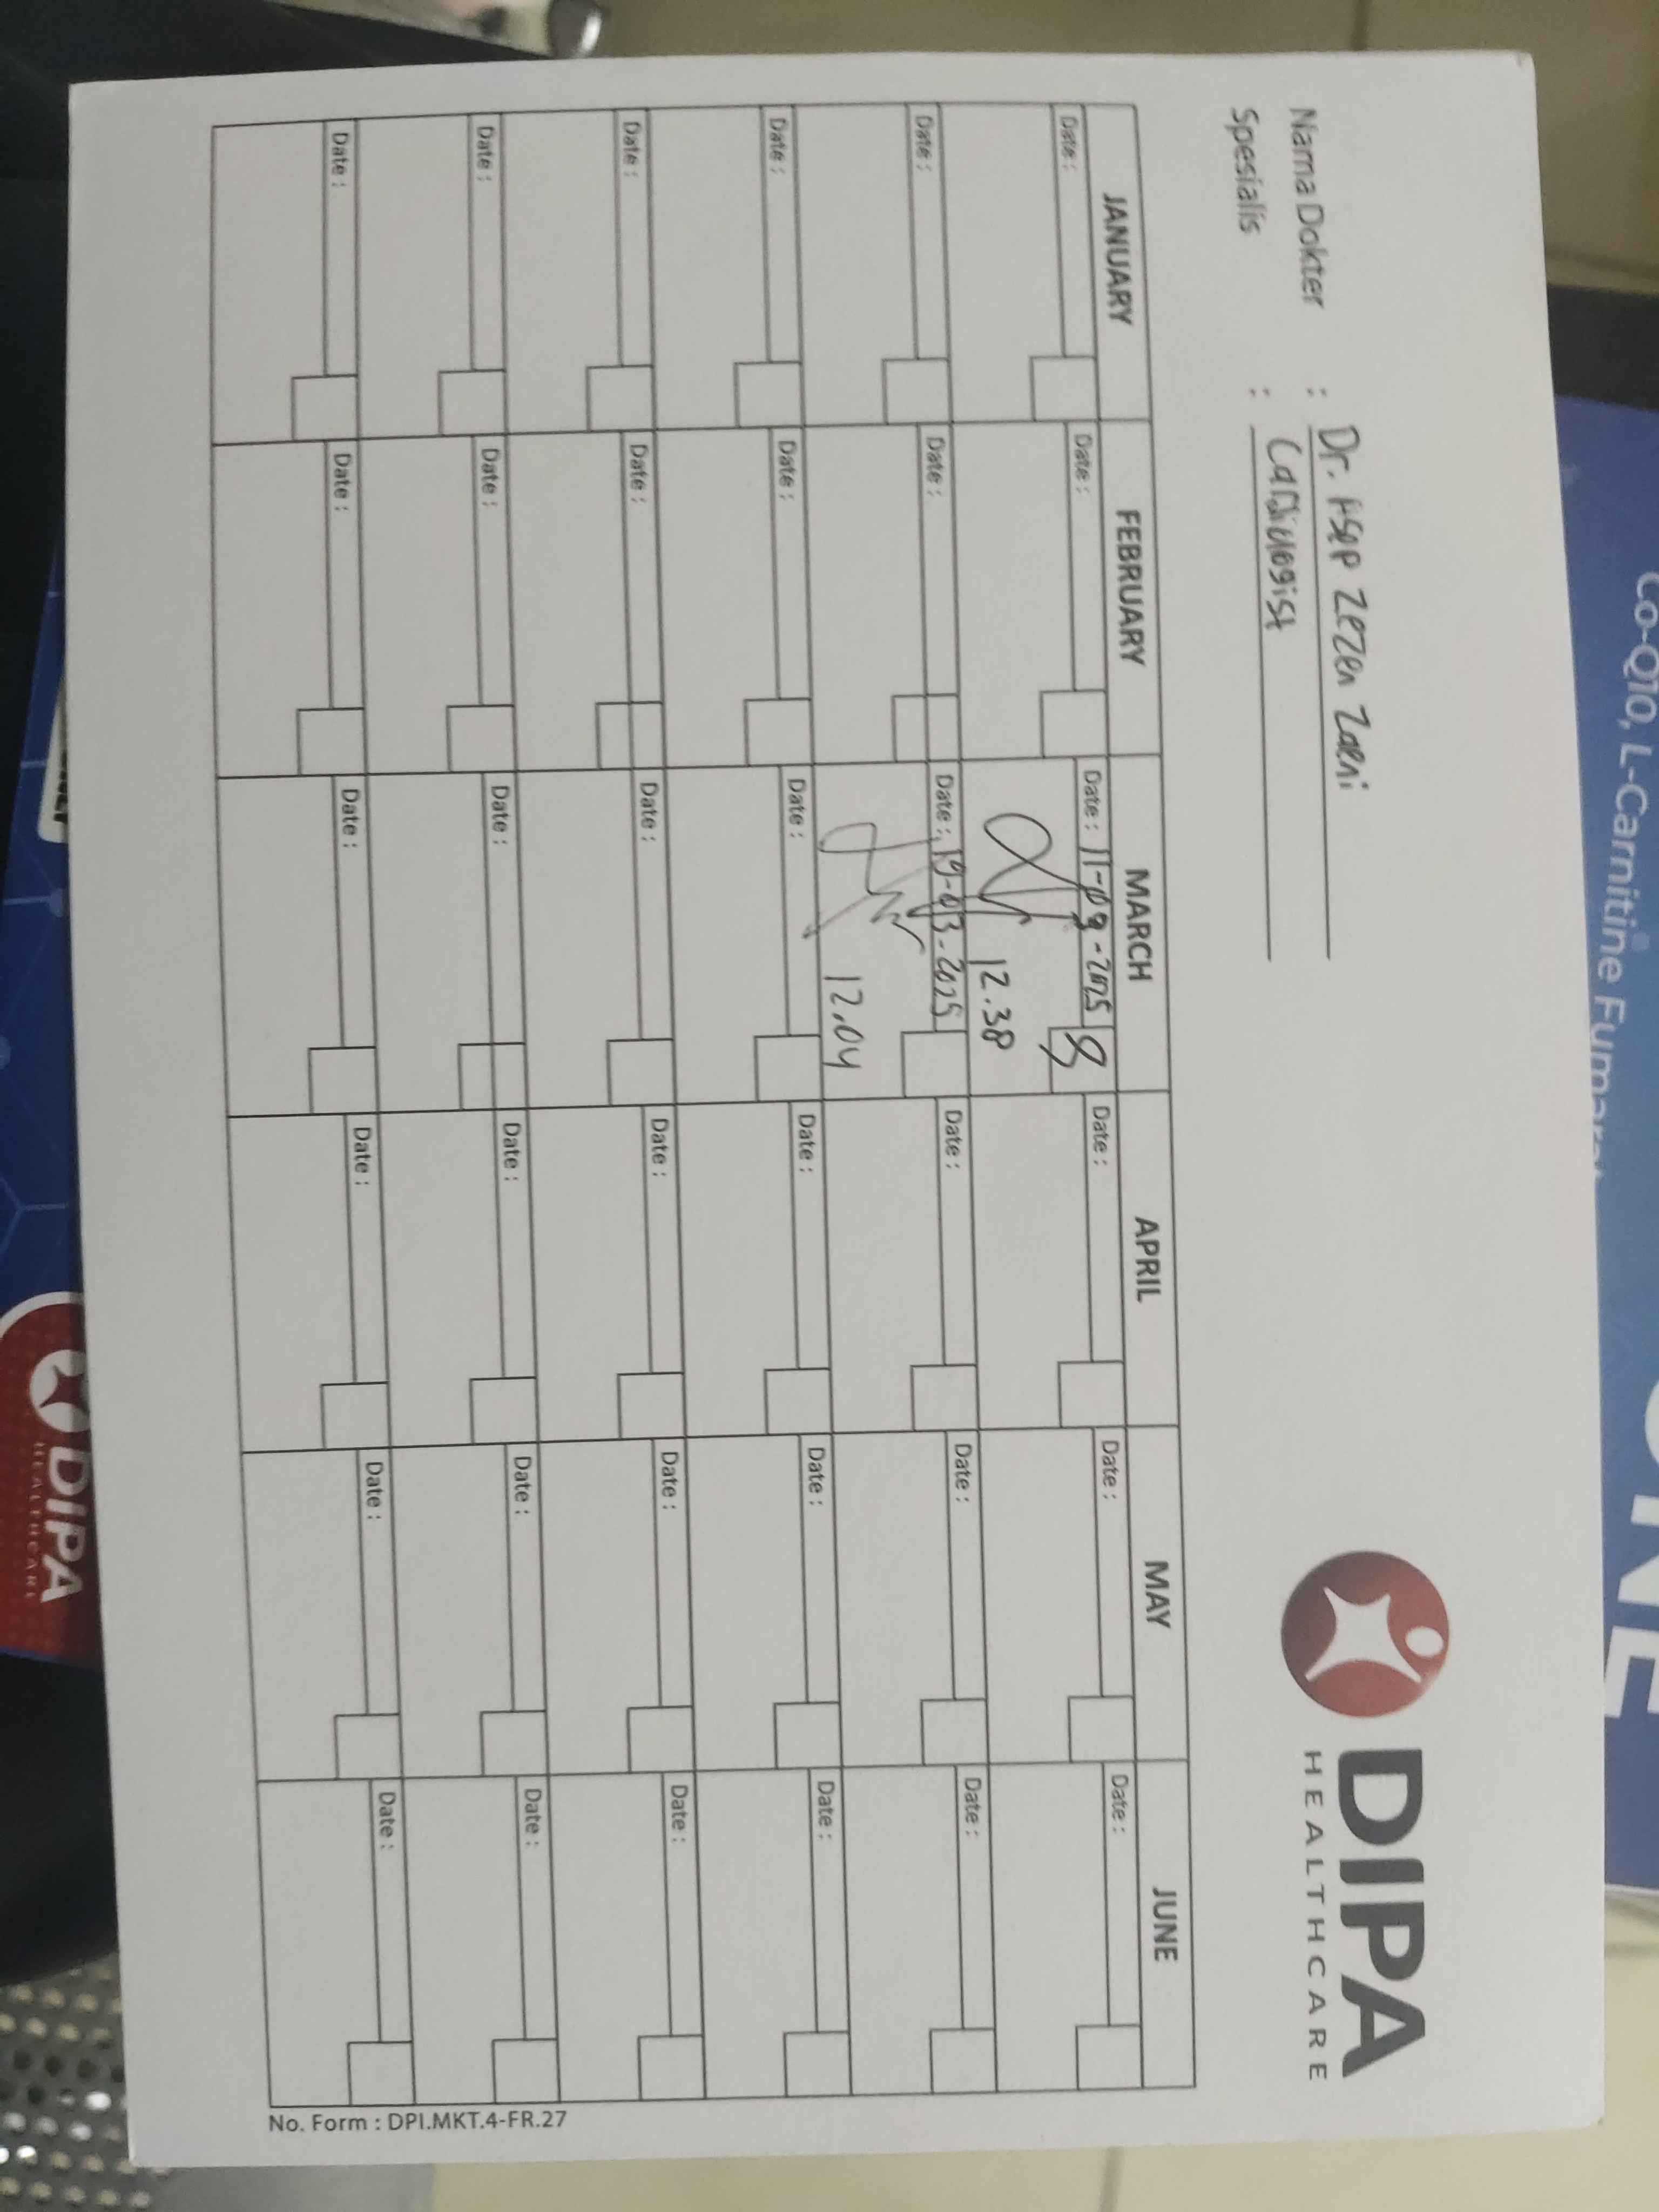 Nama Dokter : Dr. Asep Zezen Zaeni
Spesialis : Cardiologist
DIPA
HEALTHCARE
JANUARY FEBRUARY MARCH APRIL MAY JUNE
Date : Date : Date : 11-03-2025 Date : Date : Date :
12.38
Date : Date : Date : 19-03-2025 Date : Date : Date :
12.04
Date : Date : Date : Date : Date : Date :
Date : Date : Date : Date : Date : Date :
Date : Date : Date : Date : Date : Date :
Date : Date : Date : Date : Date : Date :
No. Form : DPI.MKT.4-FR.27
Co-Q10, L-Carnitine
DIPA
HEALTHCARE